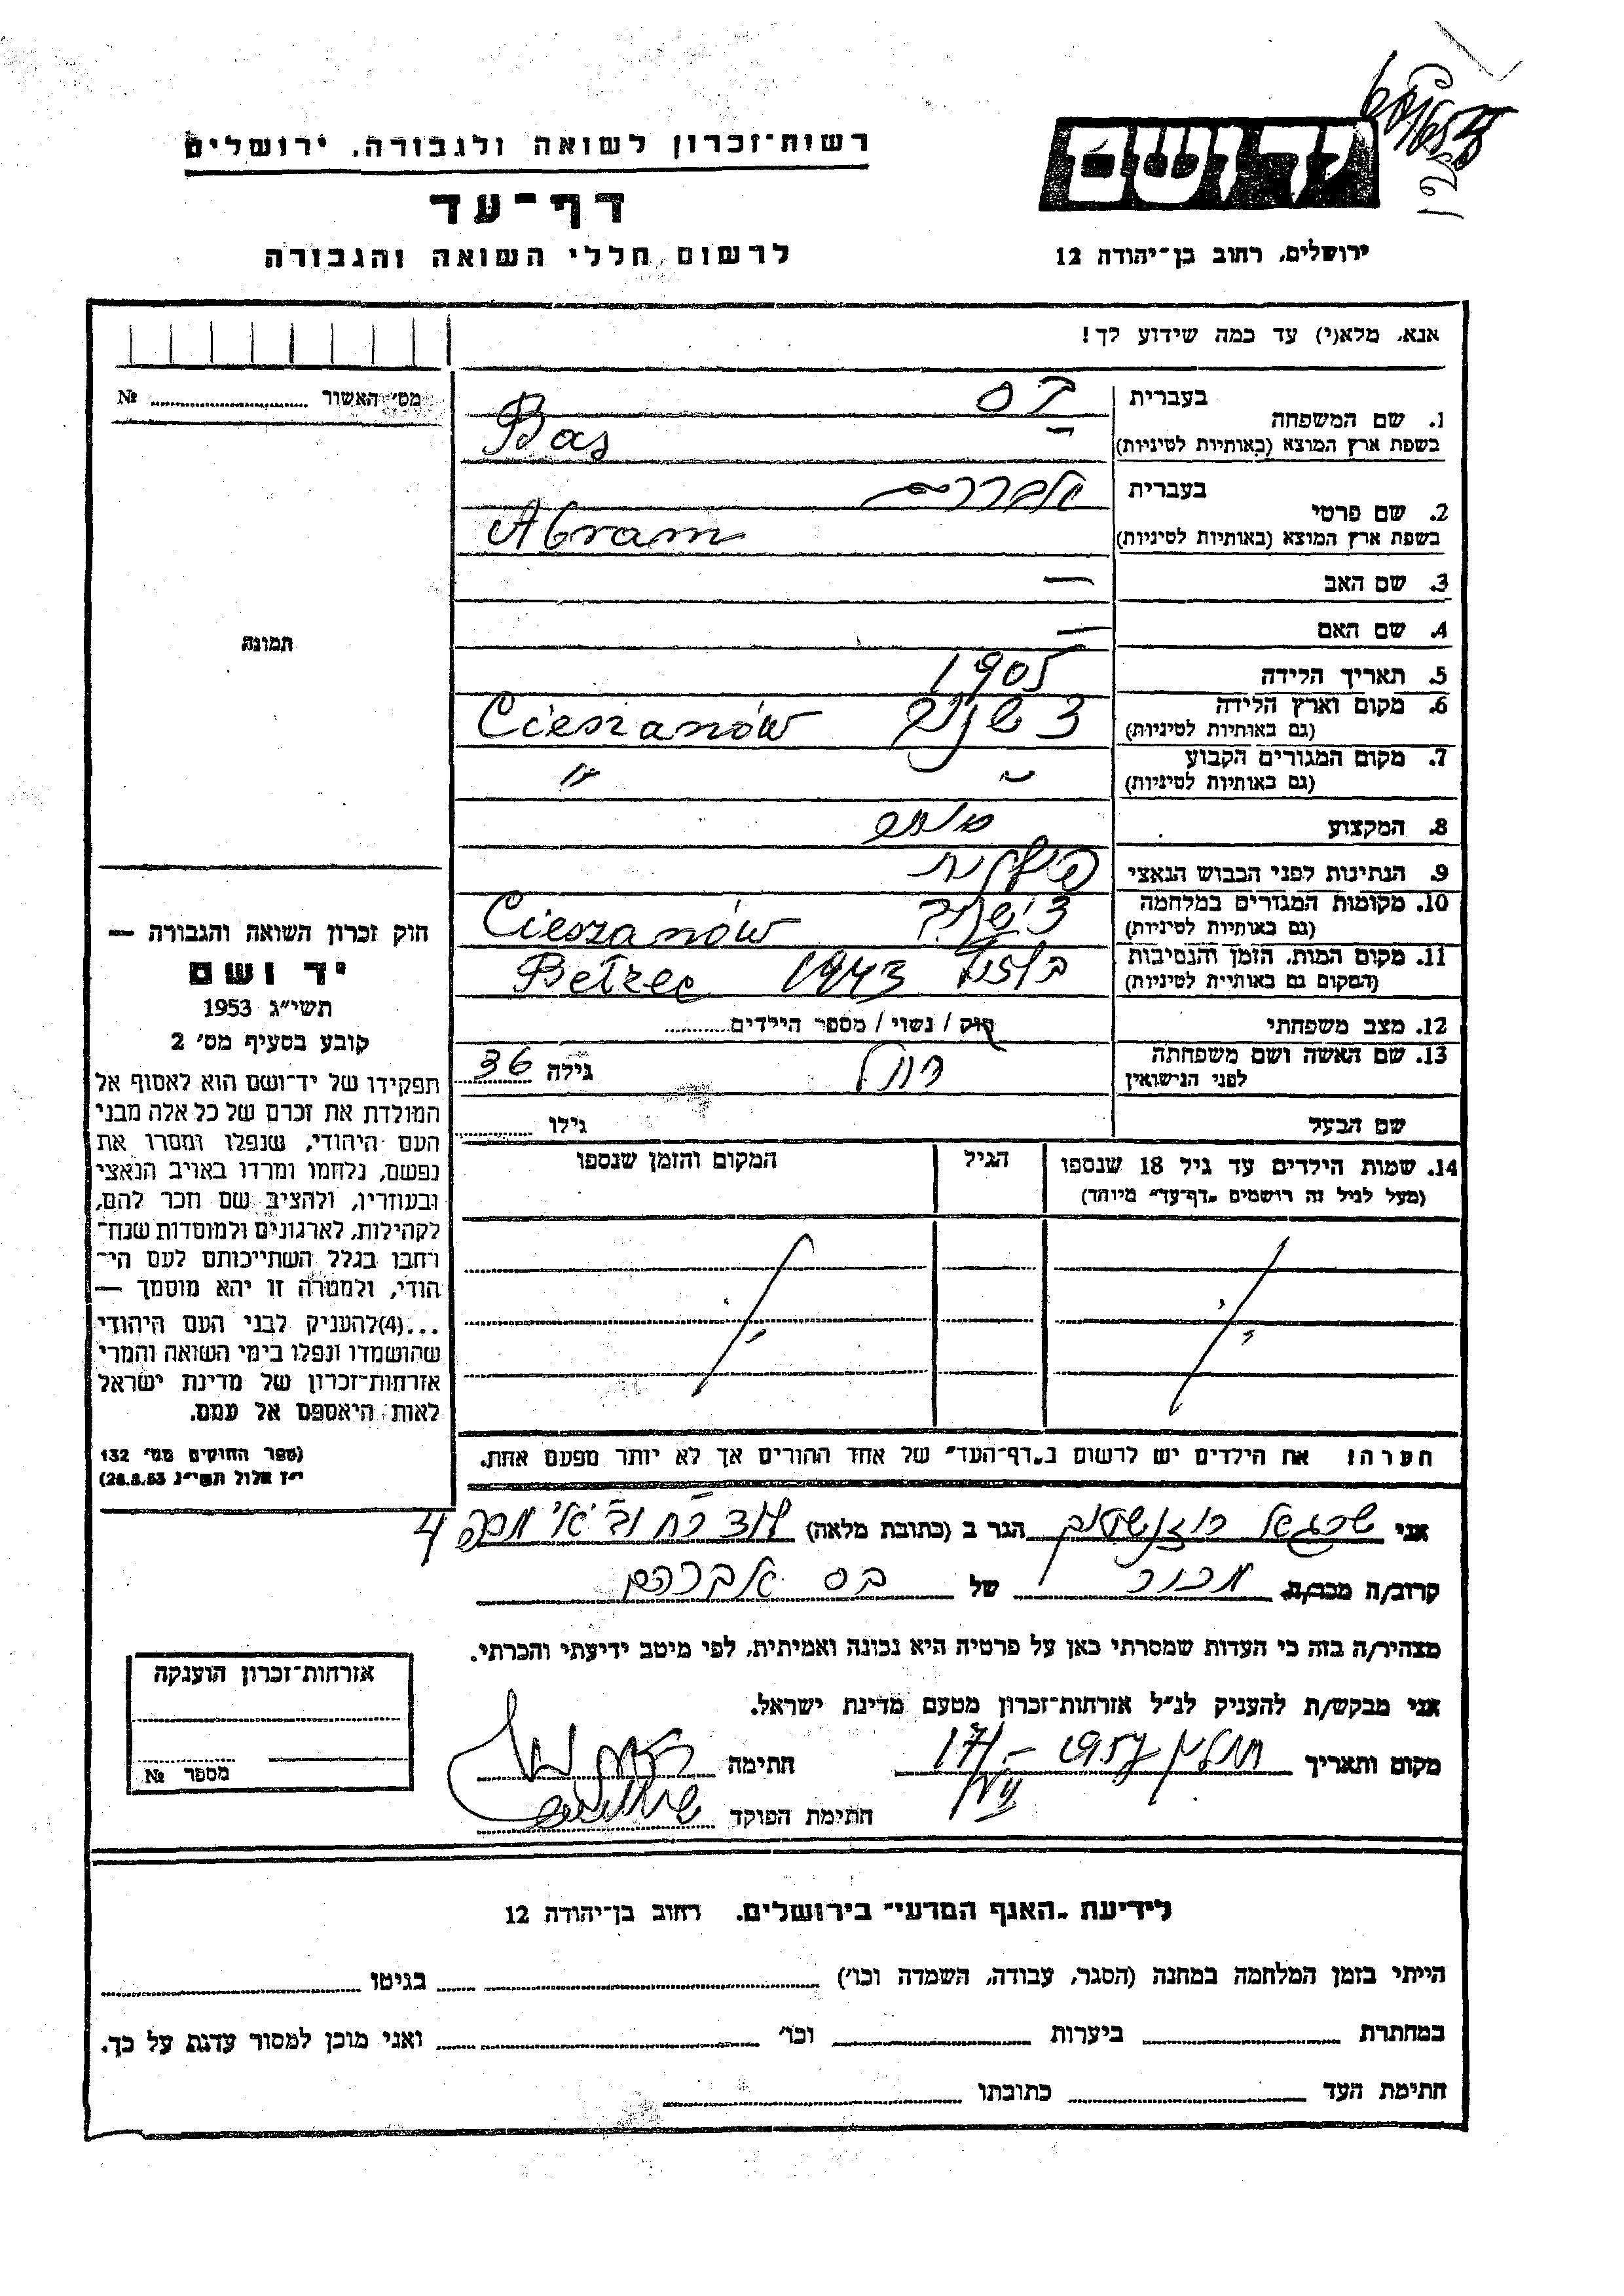 רשות־זכרון לשואה ולגבורה, ירושלים
דף־עד
לרשום חללי השואה והגבורה
יד ושם
ירושלים, רחוב בן־יהודה 12
אנא, מלא(י) עד כמה שידוע לך!
מס' האשור № ........
1. שם המשפחה
בעברית בס
בשפת ארץ המוצא (באותיות לטיניות) Bas
2. שם פרטי
בעברית אברהם
בשפת ארץ המוצא (באותיות לטיניות) Abram
3. שם האב —
4. שם האם —
5. תאריך הלידה 1905
6. מקום וארץ הלידה
(גם באותיות לטיניות) צשנוב Cieszanów
7. מקום המגורים הקבוע
(גם באותיות לטיניות) " "
8. המקצוע
9. הנתינות לפני הכבוש הנאצי פולנית
10. מקומות המגורים במלחמה
(גם באותיות לטיניות) צישנוב Cieszanów
11. מקום המות, הזמן והנסיבות
(המקום גם באותיות לטיניות) בלזץ 1943 Bełzec
12. מצב משפחתי רוק / נשוי / מספר הילדים........
13. שם האשה ושם משפחתה
לפני הנישואין רחל גילה 36
שם הבעל גילו ........
14. שמות הילדים עד גיל 18 שנספו
(מעל לגיל זה רושמים "דף־עד" מיוחד)
הגיל
המקום והזמן שנספו
תמונה
חוק זכרון השואה והגבורה —
יד ושם
תשי"ג 1953
קובע בסעיף מס' 2
תפקידו של יד־ושם הוא לאסוף אל
המולדת את זכרם של כל אלה מבני
העם היהודי, שנפלו ומסרו את
נפשם, נלחמו ומרדו באויב הנאצי
ובעוזריו, ולהציב שם וזכר להם,
לקהילות, לארגונים ולמוסדות שנח־
רבו בגלל השתייכותם לעם הי־
הודי, ולמטרה זו יהא מוסמך —
...(4)להעניק לבני העם היהודי
שהושמדו ונפלו בימי השואה והמרי
אזרחות־זכרון של מדינת ישראל
לאות היאספם אל עמם.
(ספר החוקים מס' 132
י"ז אלול תשי"ג 28.8.53)
הערה! את הילדים יש לרשום ב"דף־העד" של אחד ההורים אך לא יותר מפעם אחת.
אני הגר ב (כתובת מלאה) לוד 4
קרוב/ה מכר/ה מכיר של בס אברהם
מצהיר/ה בזה כי העדות שמסרתי כאן על פרטיה היא נכונה ואמיתית, לפי מיטב ידיעתי והכרתי.
אני מבקש/ת להעניק לנ"ל אזרחות־זכרון מטעם מדינת ישראל.
מקום ותאריך 1957 חתימה
חתימת הפוקד
אזרחות־זכרון הוענקה
מספר №
לידיעת "האגף המדעי" בירושלים, רחוב בן־יהודה 12
הייתי בזמן המלחמה במחנה (הסגר, עבודה, השמדה וכו') ........ בגיטו ........
במחתרת ........ ביערות ........ וכו' ........ ואני מוכן למסור עדות על כך.
חתימת העד ........ כתובתו ........